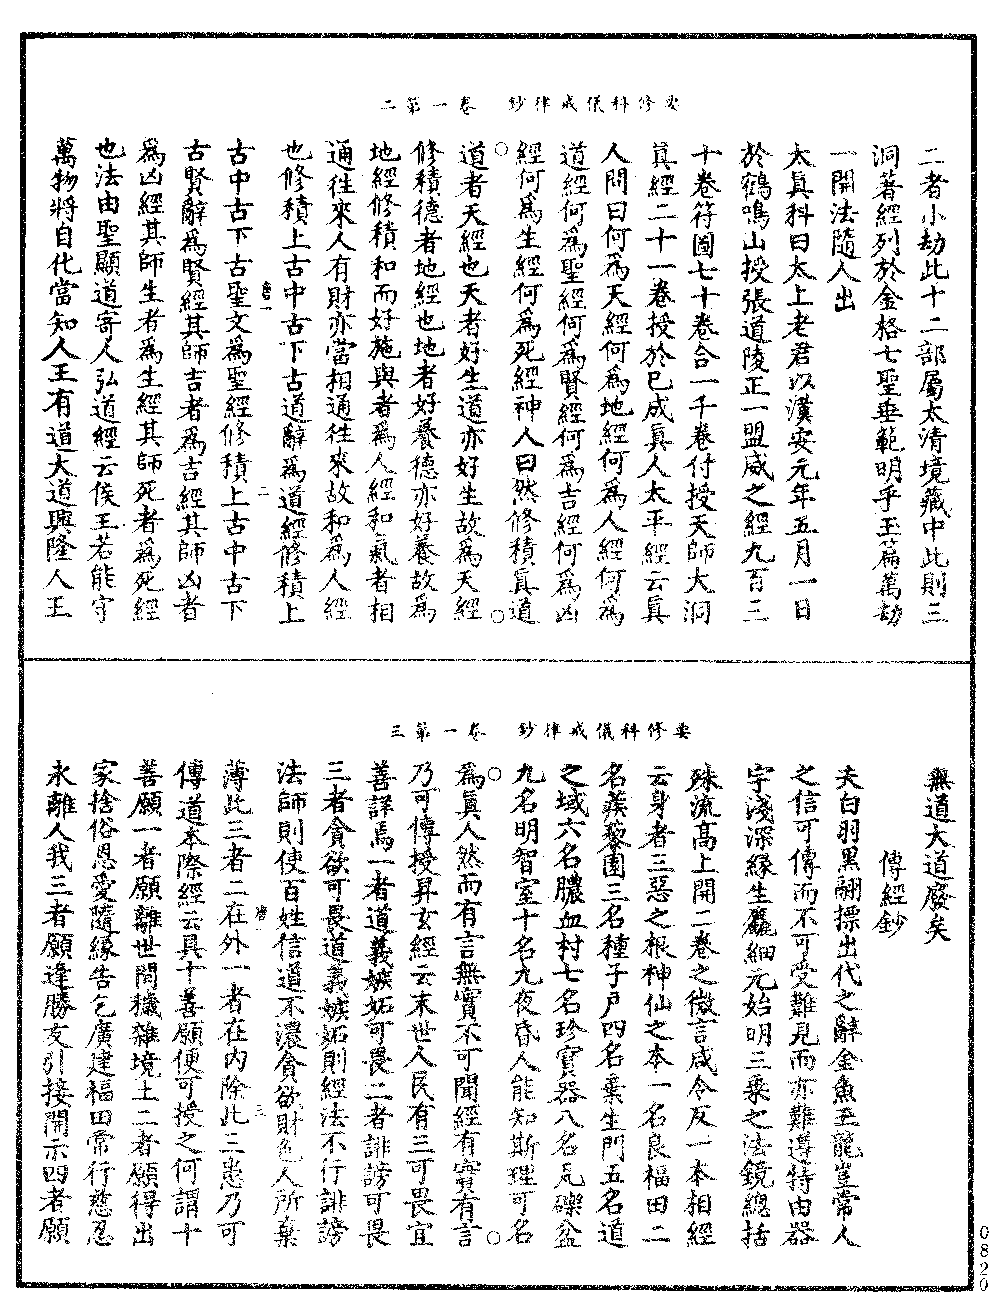 要修科儀戒律鈔　卷一第二
二者小劫此十二部屬太清境藏中此則三
洞著經列於金格七聖垂範明乎玉篇萬劫
一開法隨人出
太真科曰太上老君以漢安元年五月一日
於鶴鳴山授張道陵正一盟威之經九百三
十卷符圖七十卷合一千卷付授天師大洞
真經二十一卷授於已成真人太平經云真
人問曰何為天經何為地經何為人經何為
道經何為聖經何為賢經何為吉經何為凶
經何為生經何為死經神人曰然修積真道
道者天經也天者好生道亦好生故為天經
修積德者地經也地者好養德亦好養故為
地經修積和而好施與者為人經和氣者相
通往來人有財亦當相通往來故和為人經
也修積上古中古下古道辭為道經修積上
古中古下古聖文為聖經修積上古中古下
古賢辭為賢經其師吉者為吉經其師凶者
為凶經其師生者為生經其師死者為死經
也法由聖顯道寄人弘道經云侯王若能守
萬物將自化當知人王有道大道興隆人王
要修科儀戒律鈔　卷一第三
無道大道廢矣
傳經鈔
夫白羽黑翮摽出代之辭金魚玉龍豈常人
之信可傳而不可受難見而亦難遵持由器
宇淺深緣生麤細元始明三乘之法鏡總括
殊流高上開二卷之微言咸令反一本相經
云身者三惡之根神仙之本一名良福田二
名蒺藜園三名種子戶四名棄生門五名道
之域六名膿血村七名珍寶器八名瓦礫盆
九名明智室十名九夜昏人能知斯理可名
為真人然而有言無實不可聞經有實有言
乃可傳授昇玄經云末世人民有三可畏宜
善詳焉一者道義嫉妬可畏二者誹謗可畏
三者貪欲可畏道義嫉妬則經法不行誹謗
法師則使百姓信道不濃貪欲財色人所棄
薄此三者二在外一者在內除此三患乃可
傳道本際經云具十善願便可授之何謂十
善願一者願離世間穢雜境土二者願得出
家捨俗恩愛隨緣告乞廣建福田常行慈忍
永離人我三者願逢勝友引接開示四者願
0820